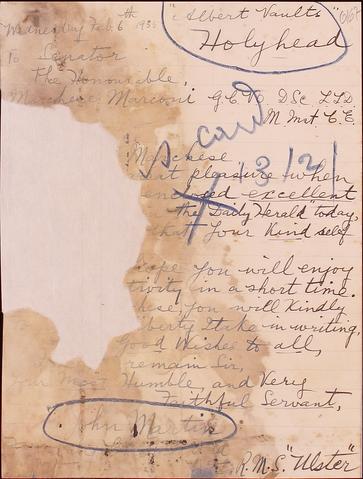 "Albert Vaults"
Wednesday Feb. 6th 193
Holyhead
To Senator
The Honourable,
Marchese Marconi G.C.V.O. DSc. LLD.
M. Inst C.E.
Card
Marchese
at pleasure when
13/2/
enclosed excellent
the "Daily Herald" today,
that your Kind self
hope you will enjoy
tivity in a short time.
hese, you will Kindly
berty I take in writing,
Good Wishes to all,
remain Sir,
Your Most Humble, and Very
Faithful Servant,
John Martin
R.M.S. "Ulster"